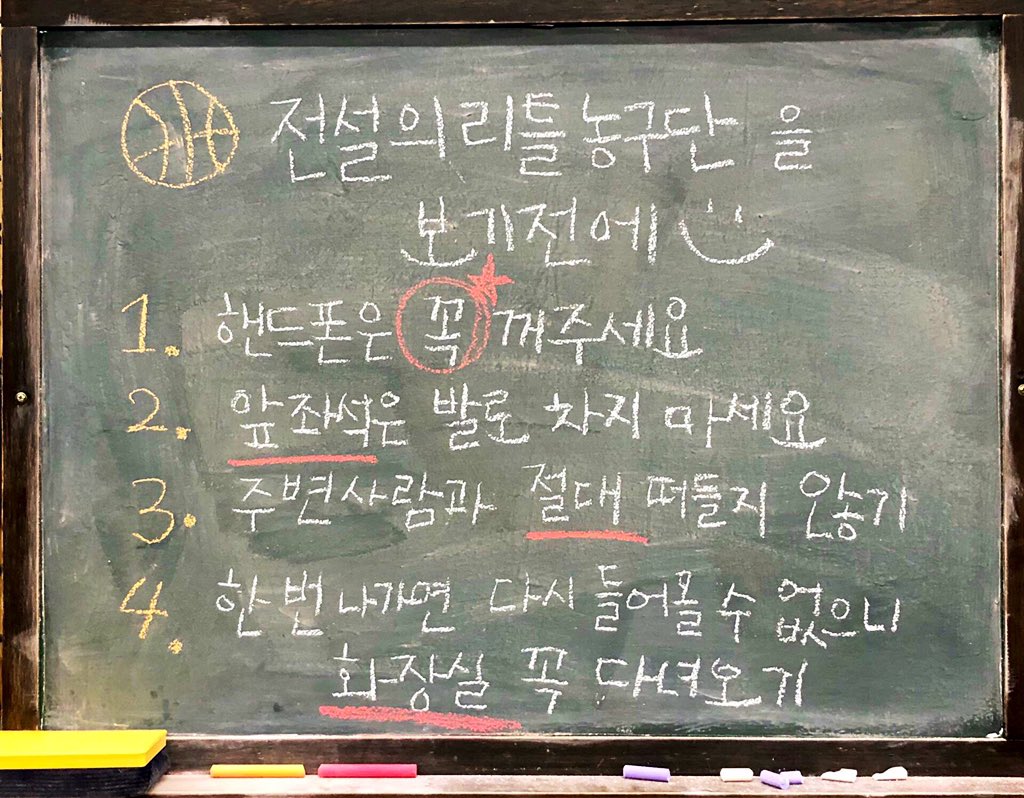 전설의 리틀 농구단 을
보기전에
1. 핸드폰은 꼭 꺼주세요
2. 앞좌석은 발로 차지 마세요
3. 주변사람과 절대 떠들지 않기
4. 한번 나가면 다시 들어올 수 없으니
화장실 꼭 다녀오기